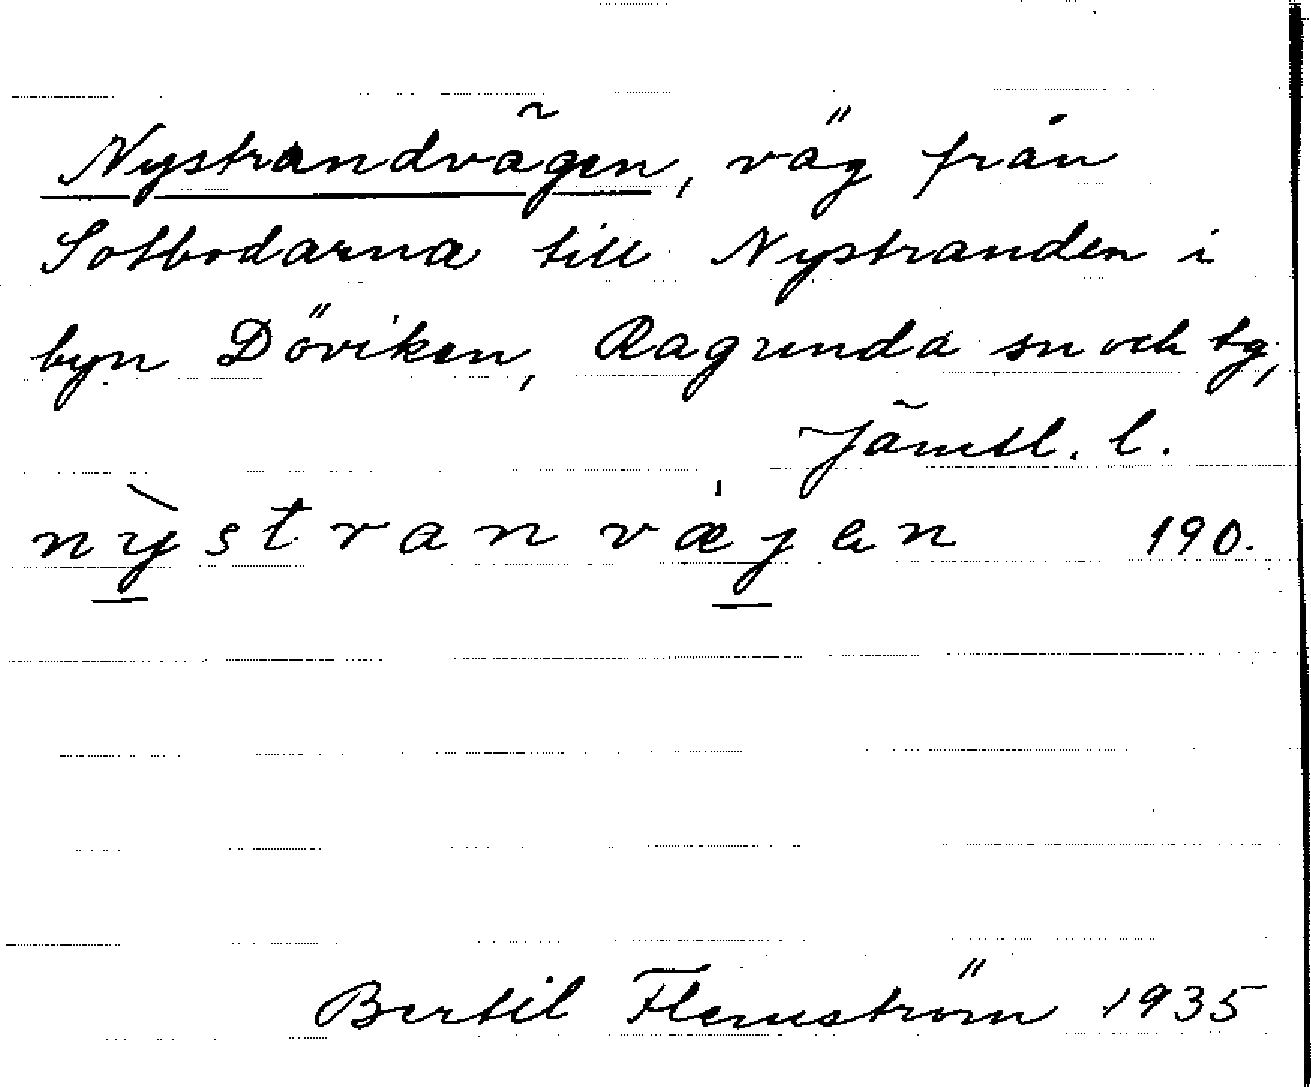 Nystrandvägen, väg från
Sotbodarna till Nystranden i
byn Döviken, Ragunda sn och tg,
Jämtl. l.
nỳstranvæ̍jen 190.
Bertil Flemström 1935